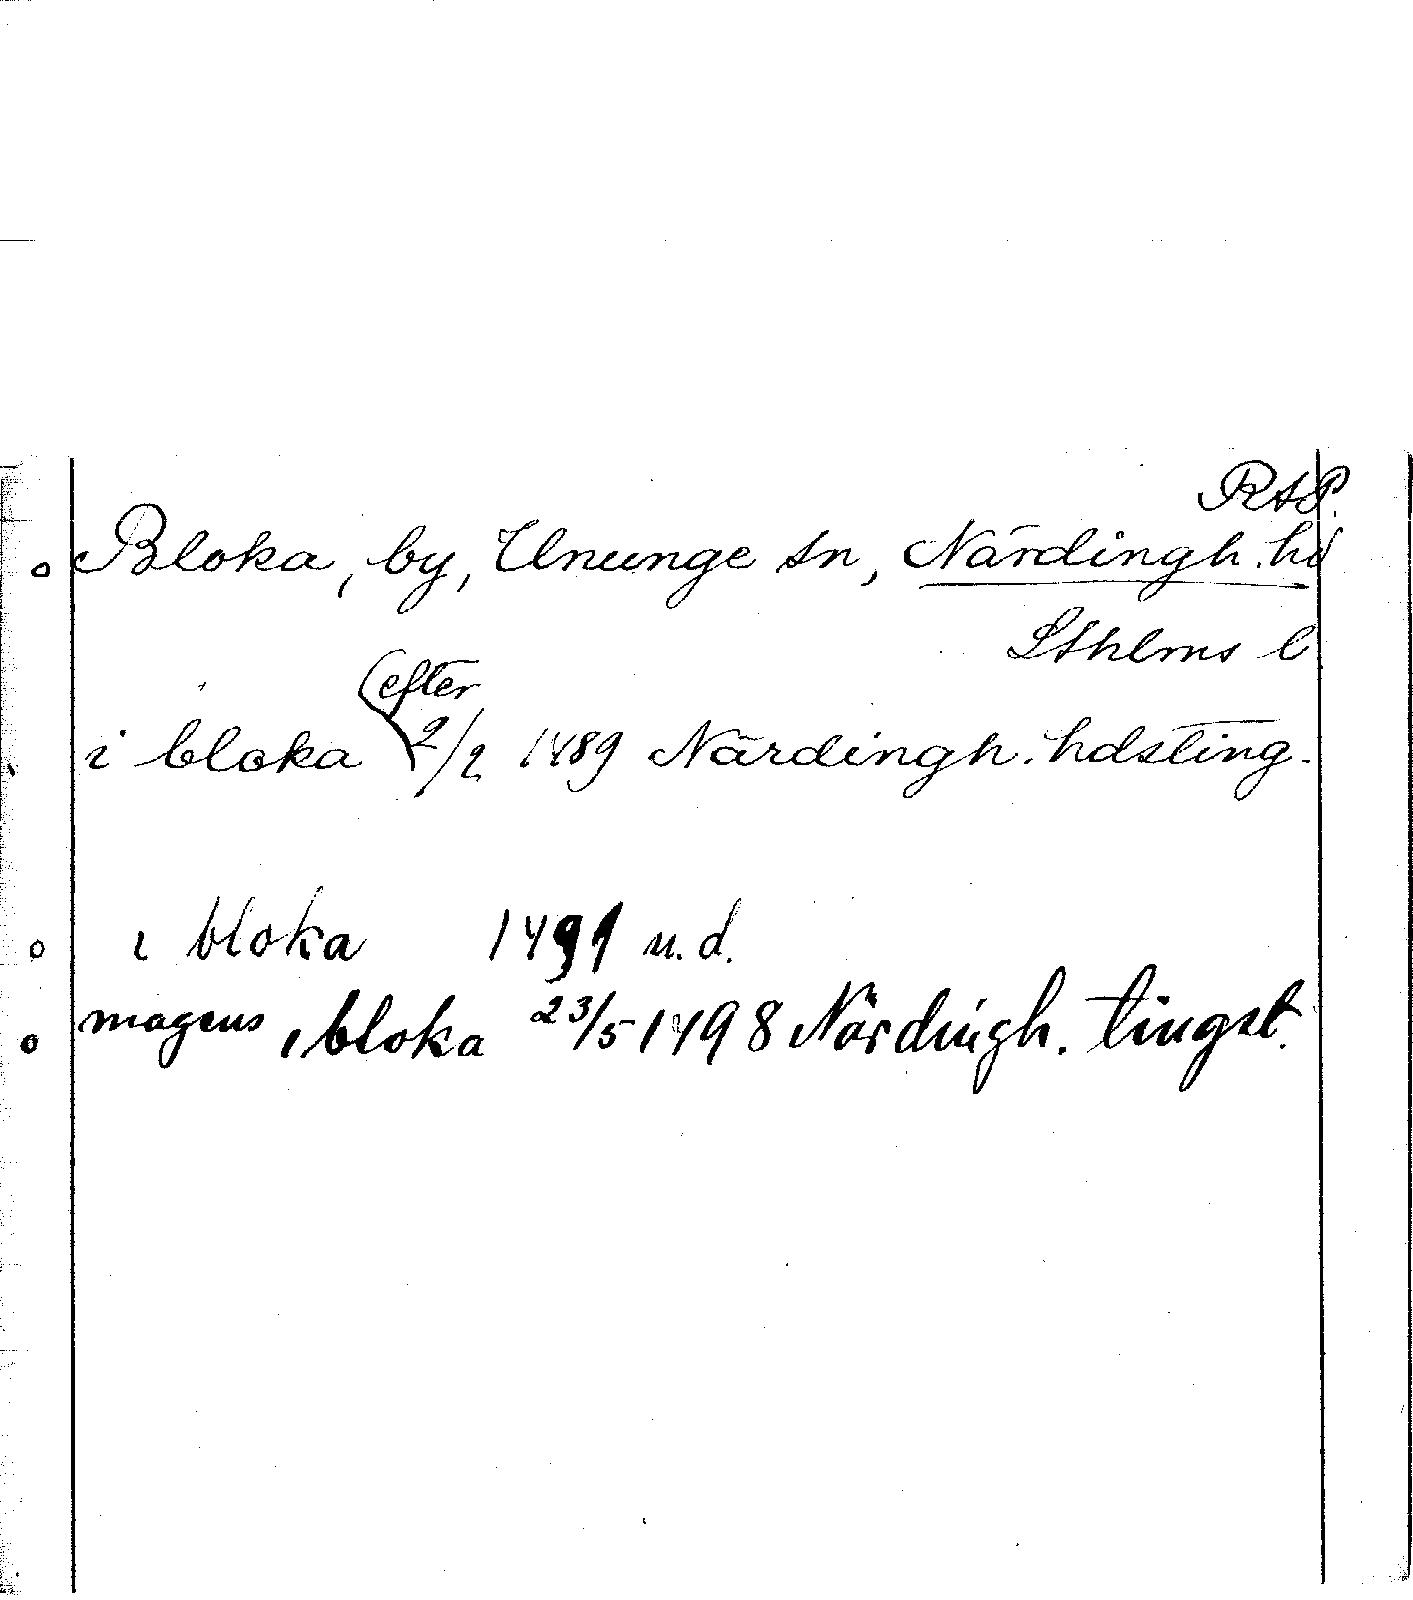 RAP.
Bloka, by, Ununge sn, Närdingh. hd
Sthlms l
efter
i bloka 2/2 1489 Närdingh. hdsting.
i bloka 1491 u.d.
magens i bloka 23/5 1498 Närdingh. tingst.